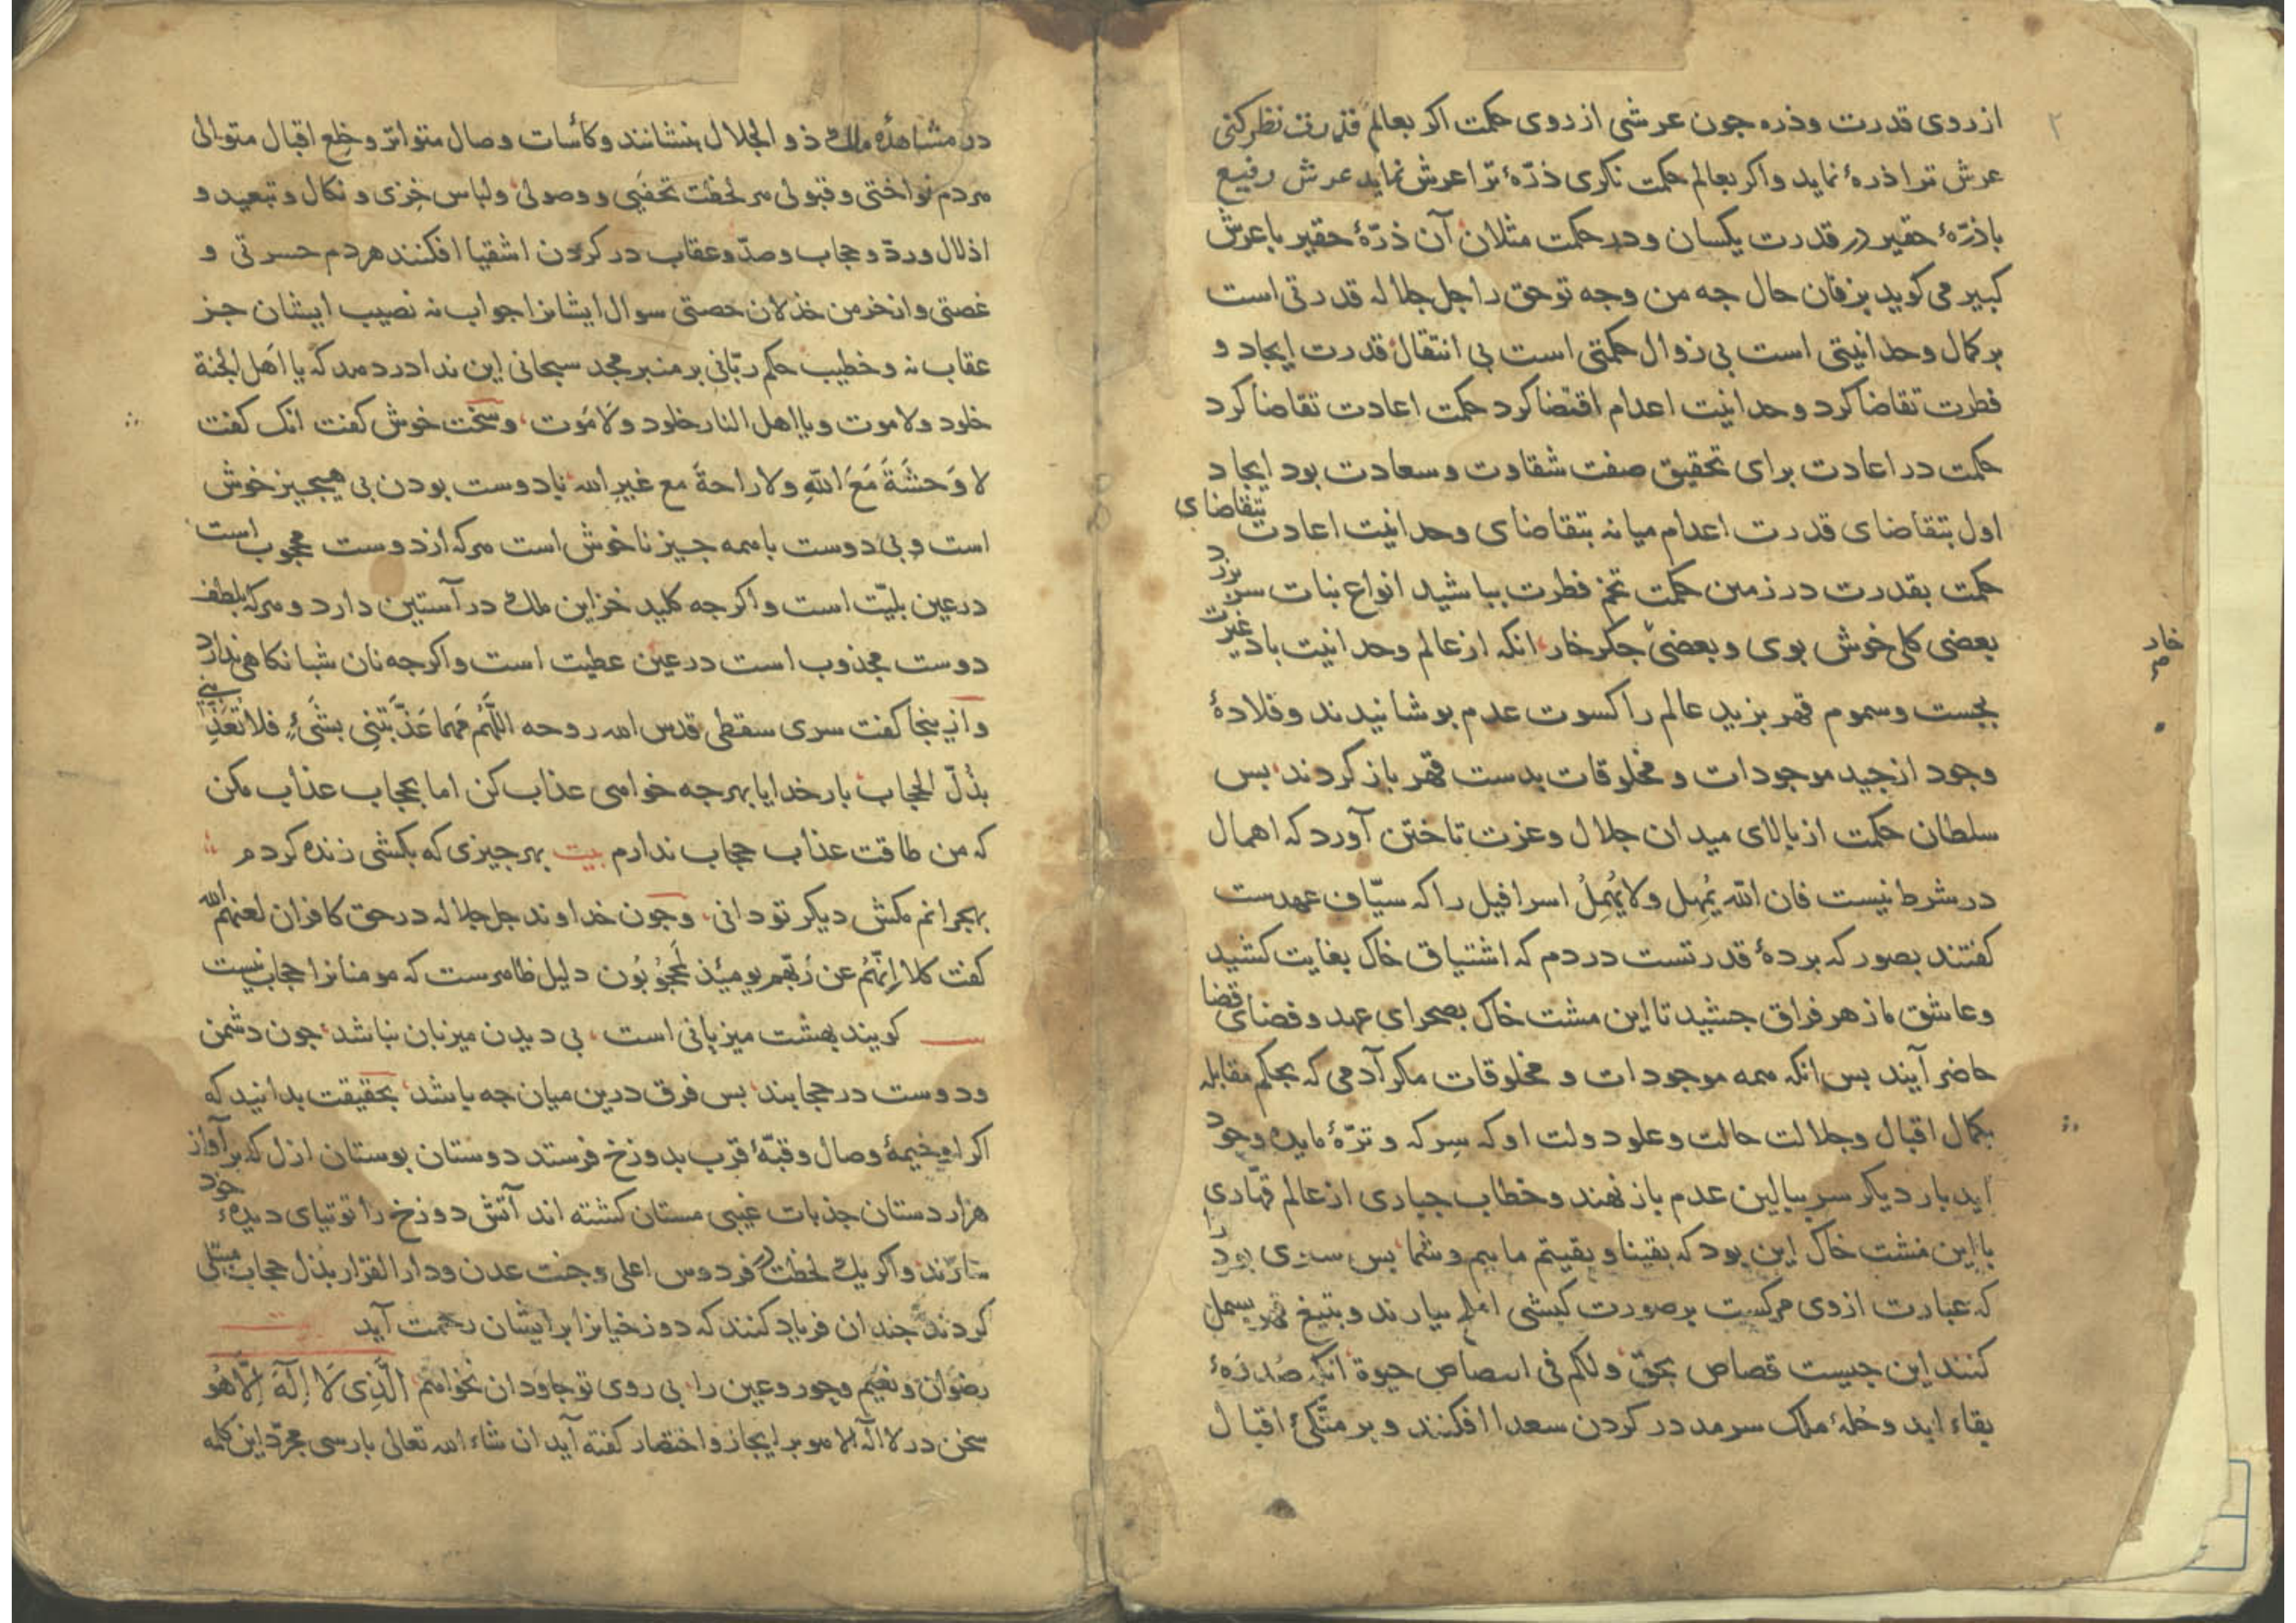 ۲
از روی قدرت و ذره جون عرشی از روی حکمت اکر بعالم قدرت نظر کنی
عرش ترا ذرهٔ نماید و اکر بعالم حکمت نکری ذرّهٔ ترا عرش نماید عرش رفیع
با ذرّهٔ حقیر در قدرت یکسان و در حکمت مثلان آن ذرّهٔ حقیر با عرش
کبیر می کوید بزفان حال جه من وجه تو حق را جل جلاله قدرتی است
بر کمال وحدانیتی است بی زوال حکمتی است بی انتقال قدرت ایجاد و
فطرت تقاضا کرد وحدانیت اعدام اقتضا کرد حکمت اعادت تقاضا کرد
حکمت در اعادت برای تحقیق صفت شقاوت و سعادت بود ایجاد
اول بتقاضای قدرت اعدام میانه بتقاضای وحدانیت اعادت بتقاضای
حکمت بقدرت در زمین حکمت تخم فطرت بباشید انواع نبات سر بزد
بعضی کل خوش بوی و بعضی جکر خار انکه از عالم وحدانیت باد غیرت
خار
بجست و سموم قهر بزید عالم را کسوت عدم بوشانیدند و قلادهٔ
وجود از جید موجودات و مخلوقات بدست قهر باز کردند بس
سلطان حکمت از بالای میدان جلال و عزت تاختن آورد که اهمال
در شرط نیست فان الله یُمهِل ولا یُهمِلُ اسرافیل را که سیّاف عهدست
کفتند بصور که بردهٔ قدرتست در دم که اشتیاق خاک بغایت کشید
و عاشق ما زهر فراق جشید تا این مشت خاک بصحرای عهد و فضای قضا
حاضر آیند بس انکه همه موجودات و مخلوقات مکر آدمی که بحکم مقابله
بکمال اقبال و جلالت حالت و علو دولت او که سِرکه و ترّهٔ مایدهٔ وجود
اید بار دیکر سر ببالین عدم باز نهند و خطاب جباری از عالم قهّاری
با این مشت خاک این بود که بقینا و بقیتم ماییم و شما بس سری را بود
که عبارت از وی مرکست بر صورت کبشی املح بیارند و بتیغ قهر بسمل
کنند این جیست قصاص بحق ولکم فی القصاص حیوة انکه صُدرَهٔ
بقاء ابد و حُلهٔ ملک سرمد در کردن سعدا افکنند و بر متّکیٔ اقبال
در مشاهدهٔ ملک ذو الجلال بنشانند و کأسات وصال متواتر و خِلَع اقبال متوالی
هر دم نواختی و قبولی هر لحظت تحفَیی و وصولی و لباس خِزی و نکال و تبعید و
اذلال و ردّ و حجاب و صدّ و عقاب در کردن اشقیا افکنند هر دم حسرتی و
غصتی و از خرمن خذلان حصتی سوال ایشانرا جواب نه نصیب ایشان جز
عقاب نه و خطیب حکم ربّانی بر منبر مجد سبحانی این ندا در دهد که یا اهل الجنة
خلود ولا موت و یا اهل النار خلود ولا مَوت و سخت خوش کفت انک کفت
لا وَحشَةَ مَعَ اللهِ ولا راحةَ مع غیرِ الله با دوست بودن بی هیجیز خوش
است و بی دوست با همه جیز ناخوش است هرکه از دوست محجوب است
در عین بلیّت است و اکر جه کلید خزاین ملک در آستین دارد و هر که بلطف
دوست مجذوب است در عین عطیت است و اکر جه نان شبانکاهی ندارد
و ازینجا کفت سری سقطی قدس الله روحه اللّهُمَ مَهما عَذّبتَنِی بشَیءٍ فلا تُعَذّبنِی
بذُلّ الحجاب بار خدایا بهر جه خواهی عذاب کن اما بحجاب عذاب مکن
که من طاقت عذاب حجاب ندارم بیت بهر جیزی که بکشی زنده کردم
بهجرانم مکش دیکر تو دانی و جون خداوند جل جلاله در حق کافران لعنهم الله
کفت کلا اِنّهُم عن رَبّهِم یومئذٍ لمَحجُوبُون دلیل ظاهرست که مومنانرا حجاب نیست
کویند بهشت میزبانی است بی دیدن میزبان نباشد جون دشمن
و دوست در حجابند بس فرق درین میان جه باشد بحقیقت بدانید که
اکر او خیمهٔ وصال و قبّهٔ قرب بدوزخ فرستد دوستان بوستان ازل که بر آواز
هزاردستان جذبات غیبی مستان کشته اند آتش دوزخ را توتیای دیدهٔ خود
سازند و اکر یک لحظت در فردوس اعلی و جنت عدن و دار القرار بذل حجاب مبتلی
کردند جندان فریاد کنند که دوزخیانرا بر ایشان رحمت آید
رضوان و نعیم و حور و عین را بی روی تو جاودان نخواهم الَّذِی لَا اِلَهَ اِلَّا هُو
سخن در لا اله الا هو بر ایجاز و اختصار کفته آید ان شاء الله تعالی بارسی مجرّد این کلمه